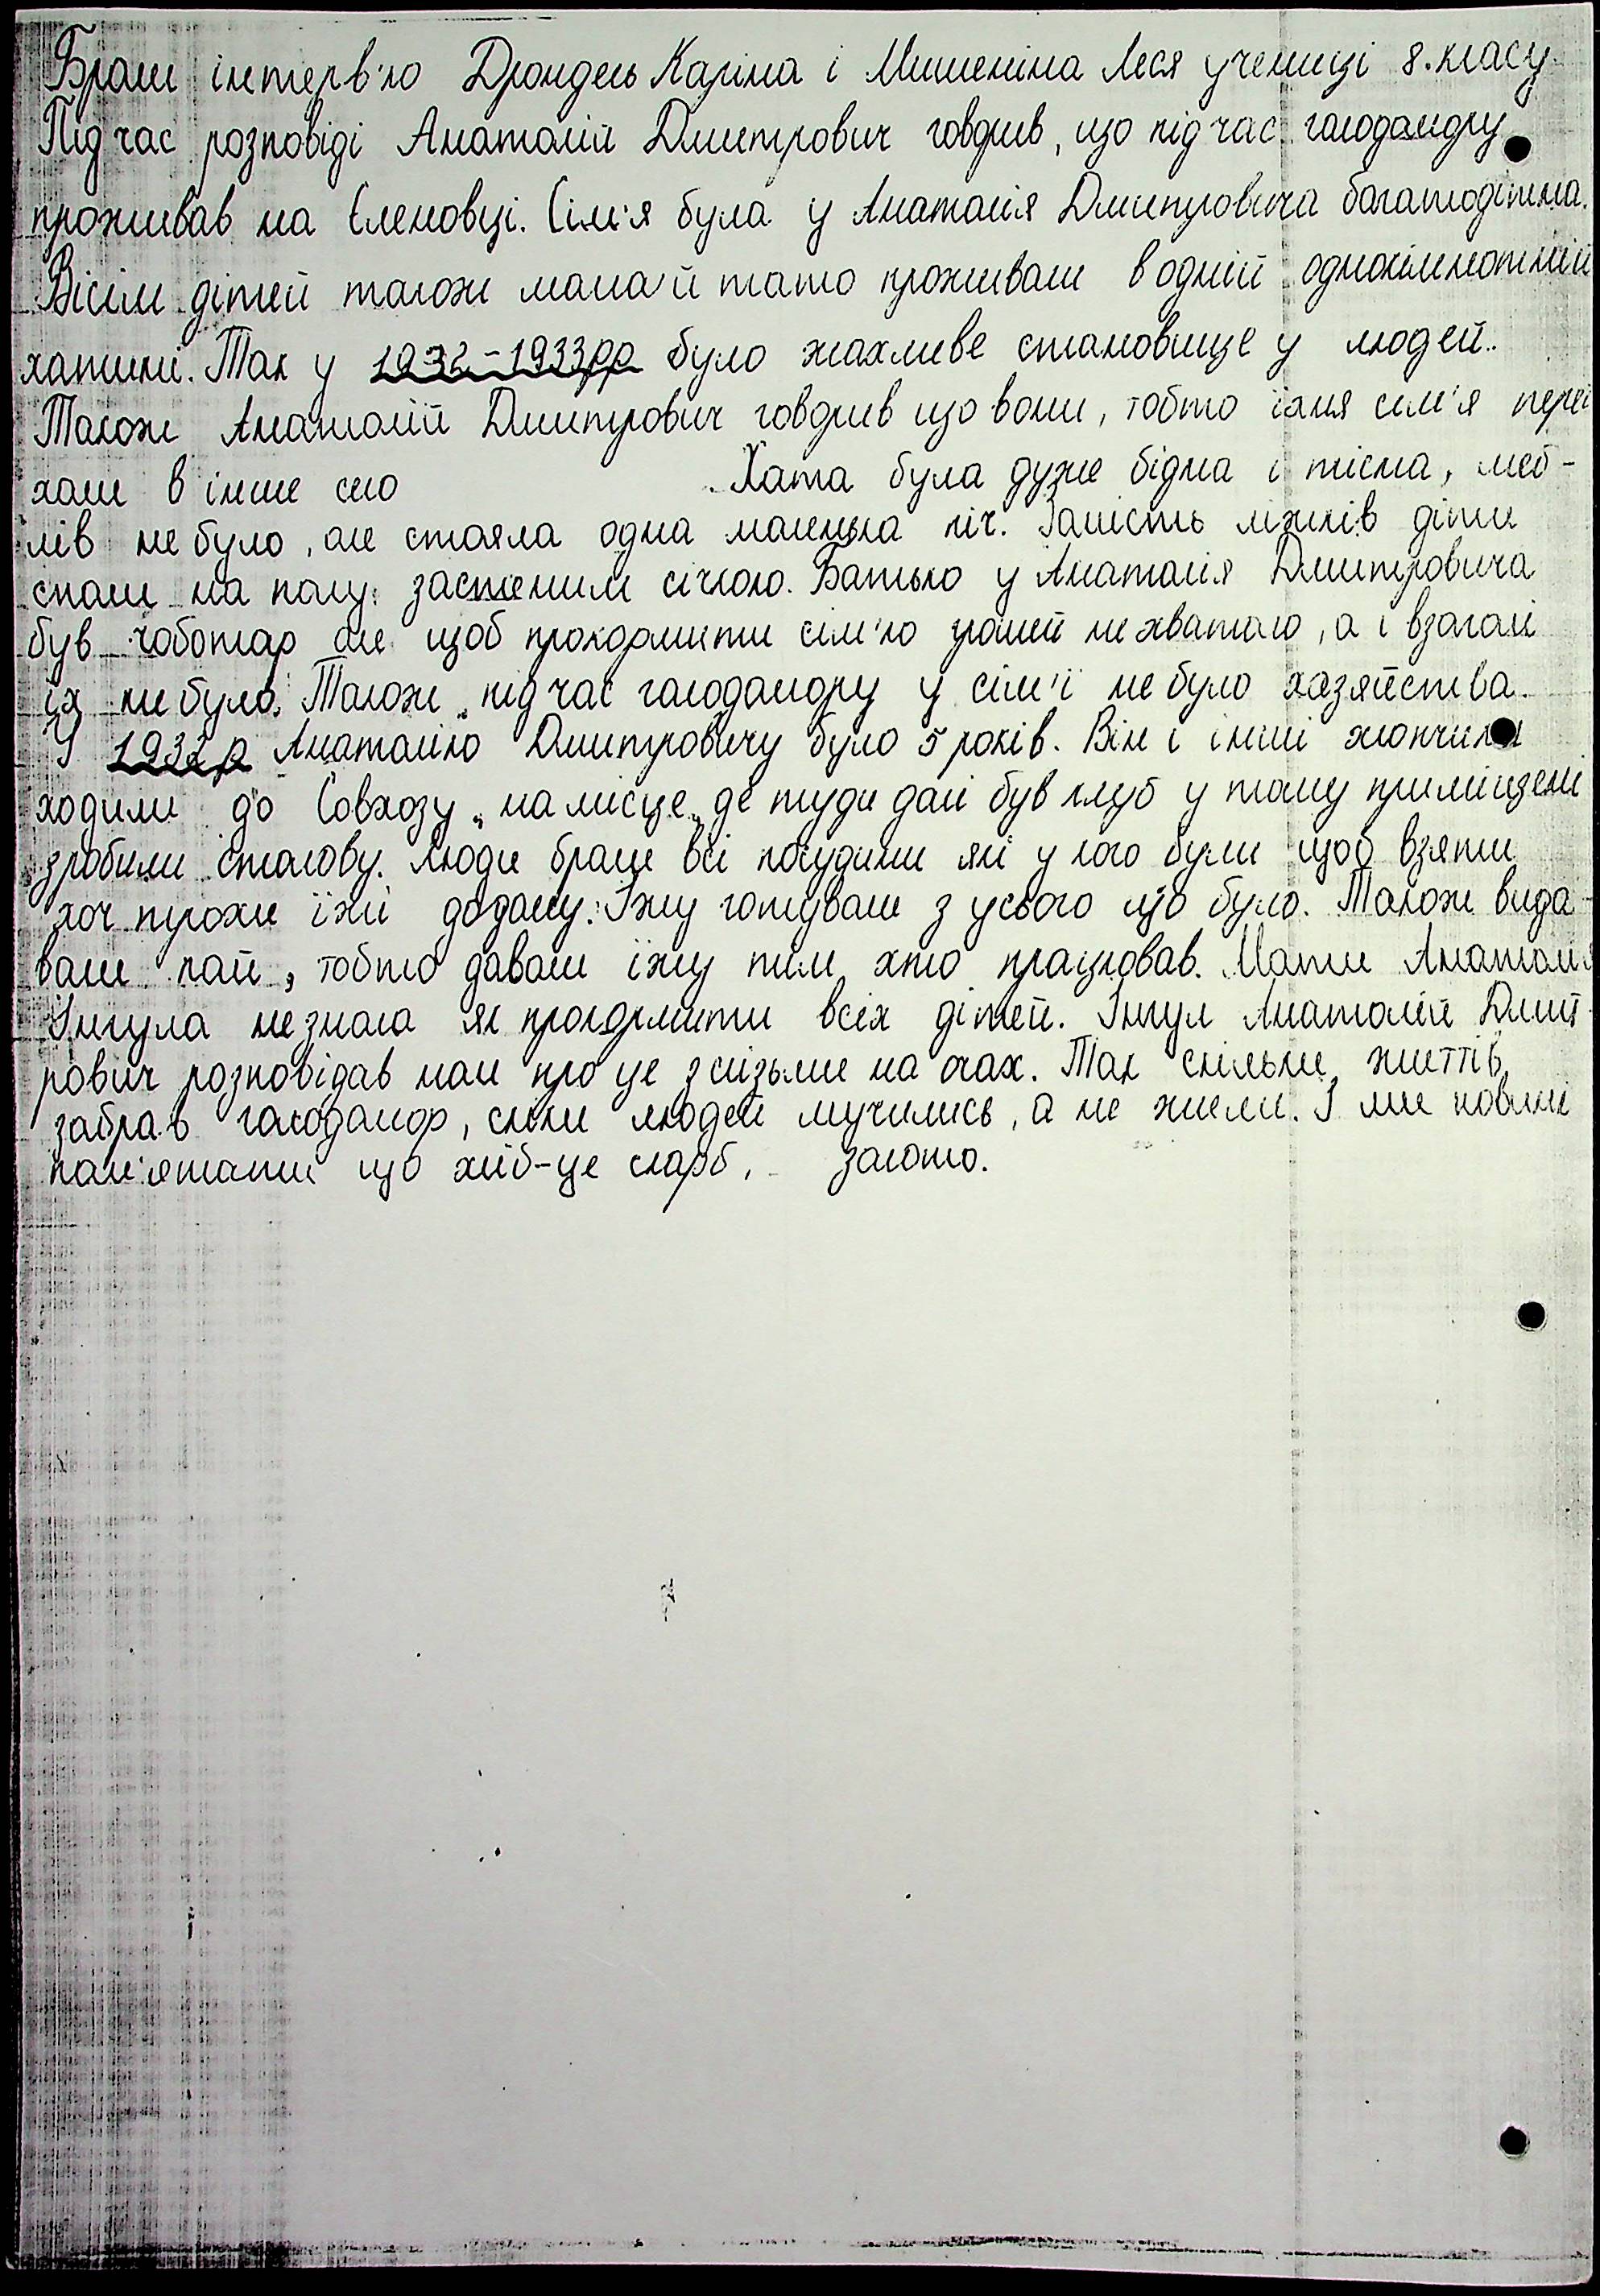 Брали інтерв'ю Дрондель Каріна і Мишеніна Леся учениці 8. класу
Під час розповіді Анатолій Дмитрович говорив, що під час голодомору
проживав на Єленовці. Сім'я була у Анатолія Дмитровича багатодітна.
Вісім дітей також мама й тато проживали в одній однокімнатній
хатині. Так у 1932-1933рр було жахливе становище у людей.
Також Анатолій Дмитрович говорив що вони, тобто їхня сім'я переї
хали в інше село Хата була дуже бідна і тісна, меб-
лів не було, але стояла одна маленька піч. Замість ліжків діти
спали на полу застеленим січкою. Батько у Анатолія Дмитровича
був чоботар але щоб прокормити сім'ю грошей не хватало, а і взагалі
їх не було. Також під час голодомору у сім'ї не було хазяйства.
У Анатолію Дмитровичу було 5 років. Він і інші хлопчики
ходили до Совхозу, на місце, де туди далі був клуб у тому приміщені
зробили столову. Люди брали всі посудини які у кого були щоб взяти
хоч трохи їжі додому. Їжу готували з усього що було. Також вида-
вали пай, тобто давали їжу тим хто працював. Мати Анатолія
Інгула не знала як прокормити всіх дітей. Інгул Анатолій Дмит-
рович розповідав нам про це з слізьми на очах. Так скільки життів
забрав голодомор, скіки людей мучились, а не жили. І ми повині
пам'ятати що хліб-це скарб, золото.